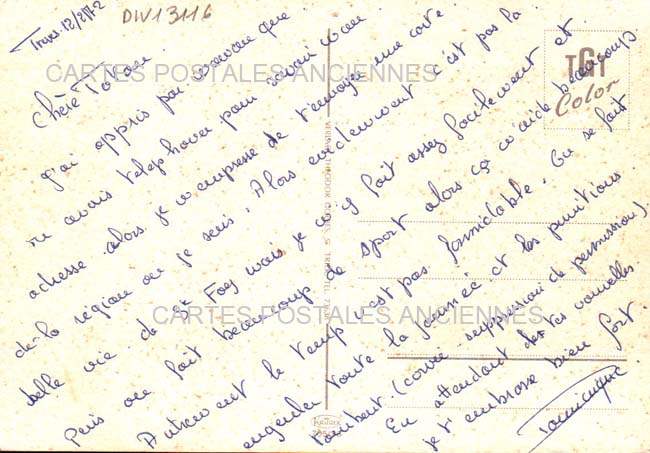 DIV13116
Treves 12/2/72
Chère Totan
J'ai appris par maman que
tu avais telephoner pour savoir mon
adresse alors je m'empresse de t'envoyer une carte
de la region ou je suis. Alors evidemment c'est pas la
belle vie de St Foy mais je m'y fait assez facilement et
Puis on fait beaucoup de sport alors ça m'aide beaucoup
Autrement le temps n'est pas formidable. On se fait
engueuler toute la journée et les punitions
tombent. (corvée suppression de permission).
En attendant de tes nouvelles
je t'embrasse bien fort.
Dominique
TGT
Color
CARTES POSTALES ANCIENNES
CARTES POSTALES ANCIENNES
VERLAG THEODOR